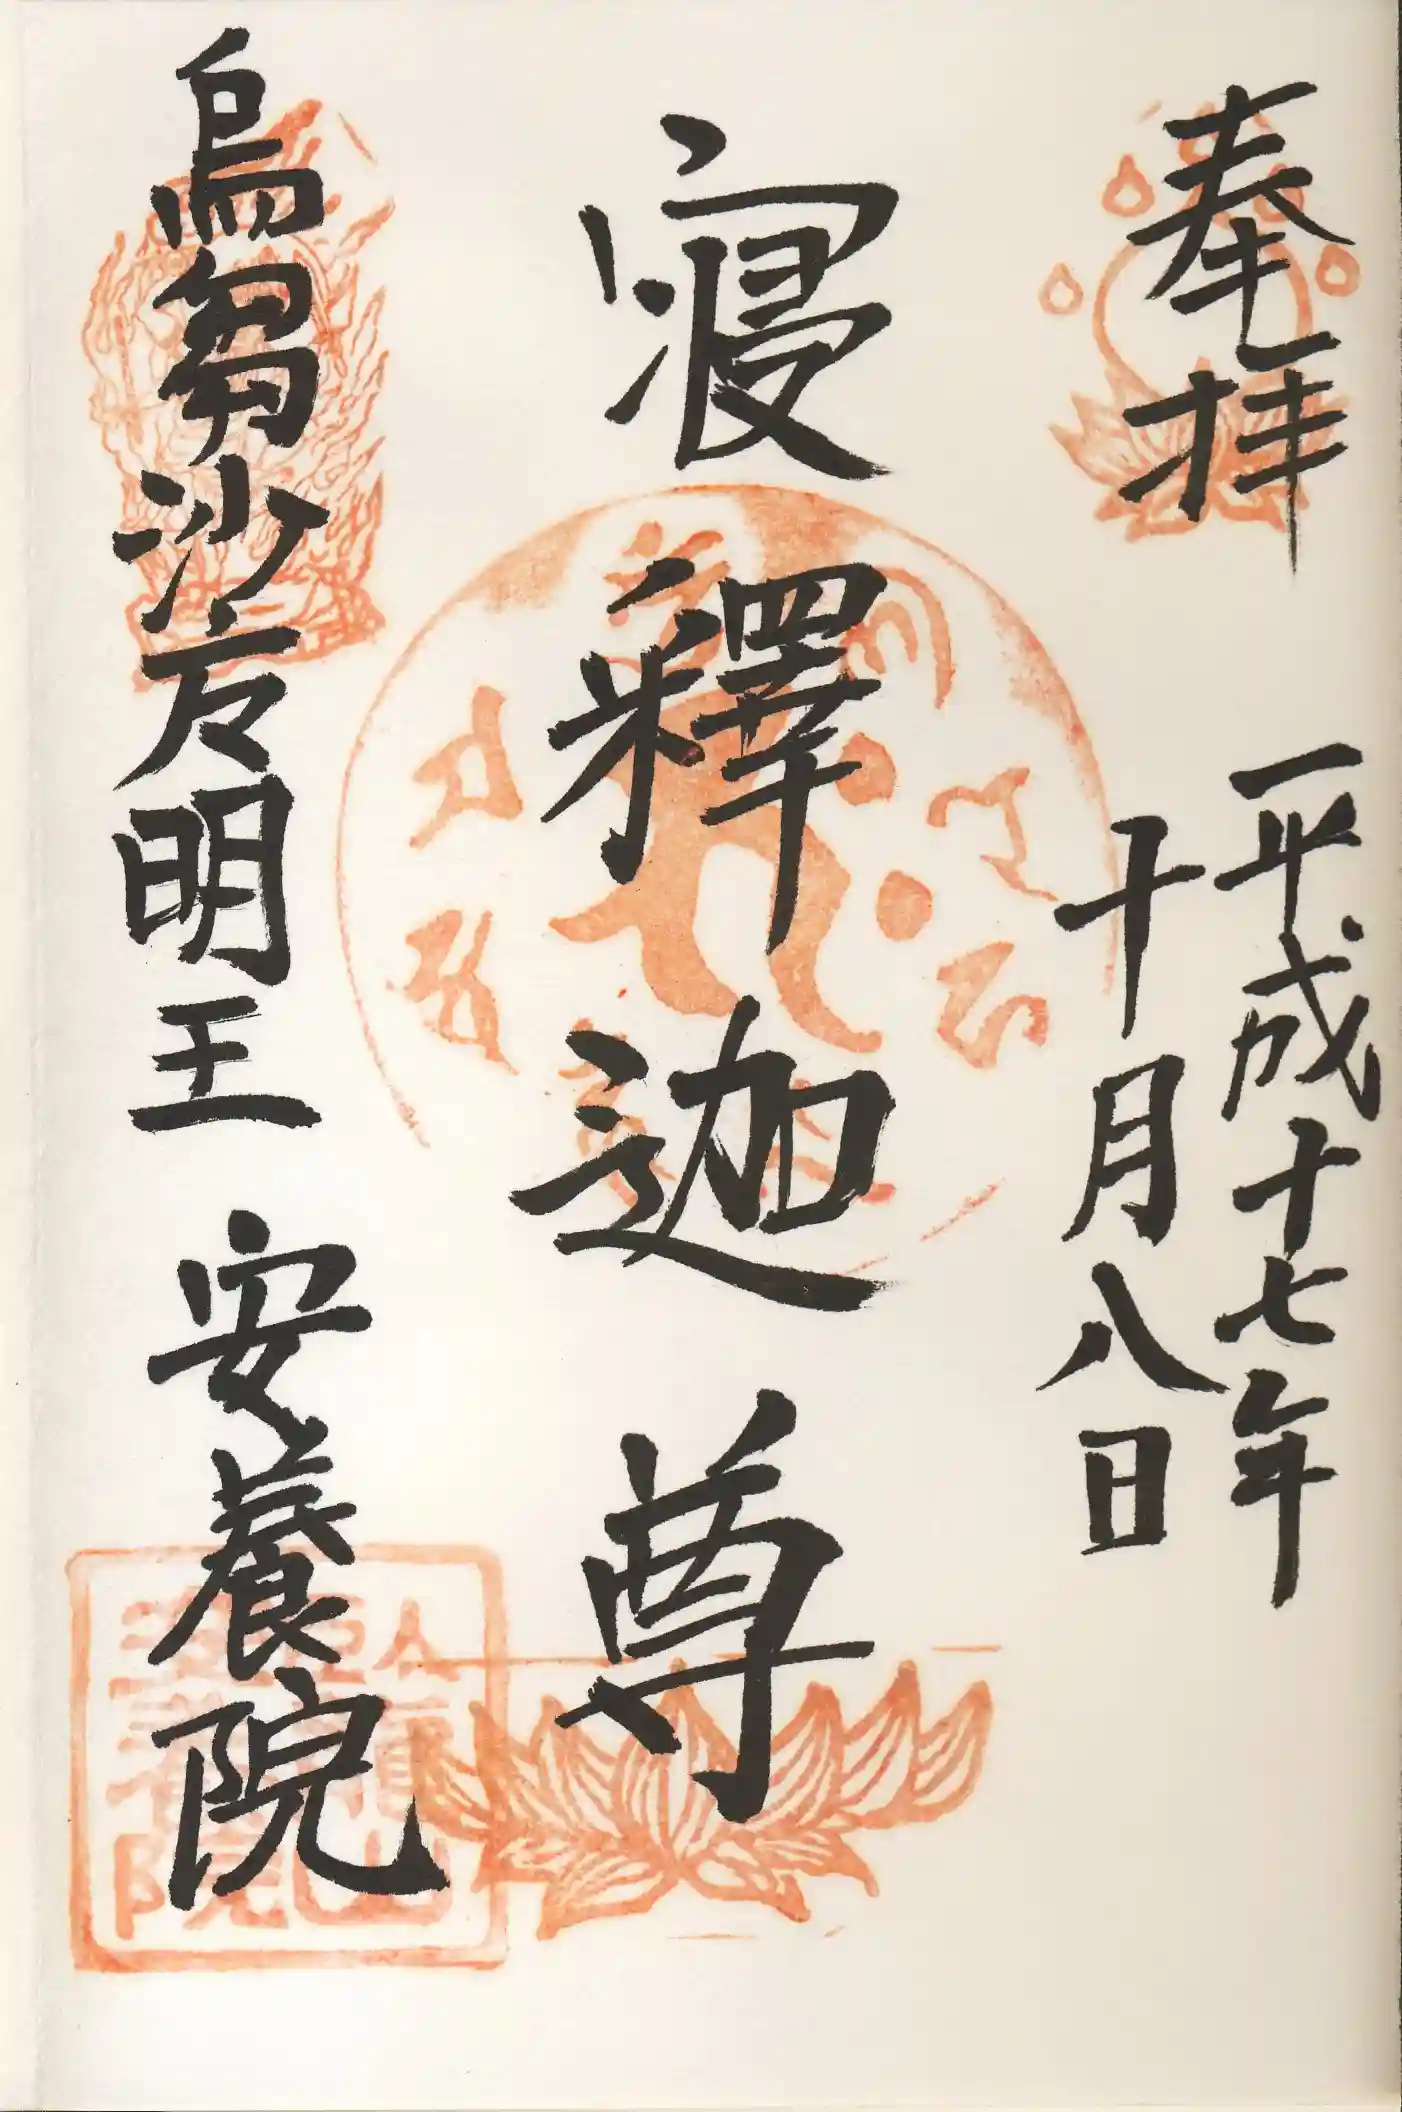 奉拝
平成十七年
十月八日
寝釋迦尊
烏芻沙广々明王 安養院